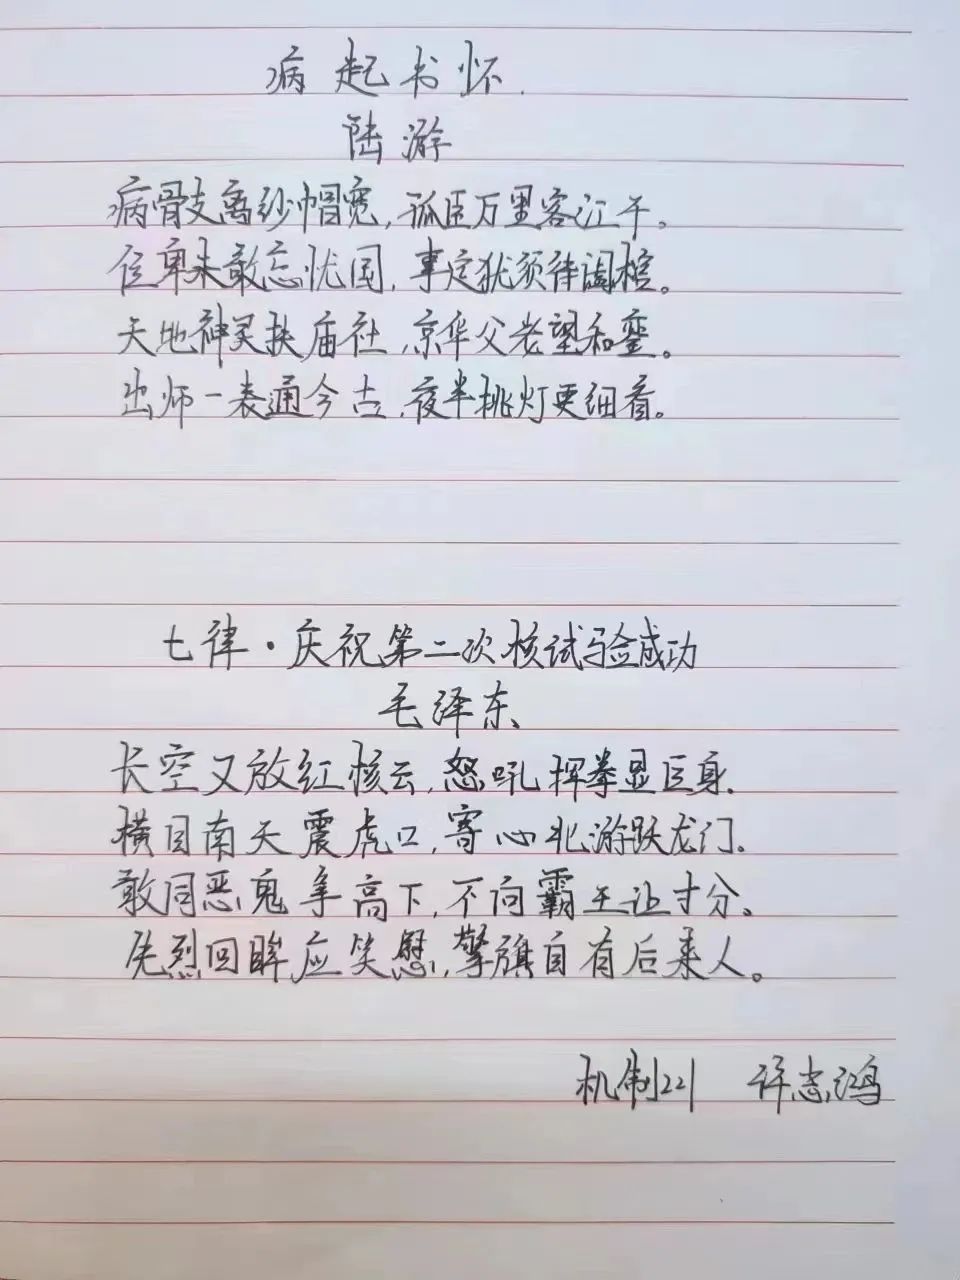 病起书怀
陆游
病骨支离纱帽宽,孤臣万里客江干。
位卑未敢忘忧国,事定犹须待阖棺。
天地神灵扶庙社,京华父老望和銮。
出师一表通今古,夜半挑灯更细看。
七律·庆祝第二次核试验成功
毛泽东
长空又放红核云,怒吼挥拳显巨身.
横目南天震虎口,寄心北游跃龙门.
敢同恶鬼争高下,不向霸王让寸分。
先烈回眸应笑慰,擎旗自有后来人。
机制221 许志鸿